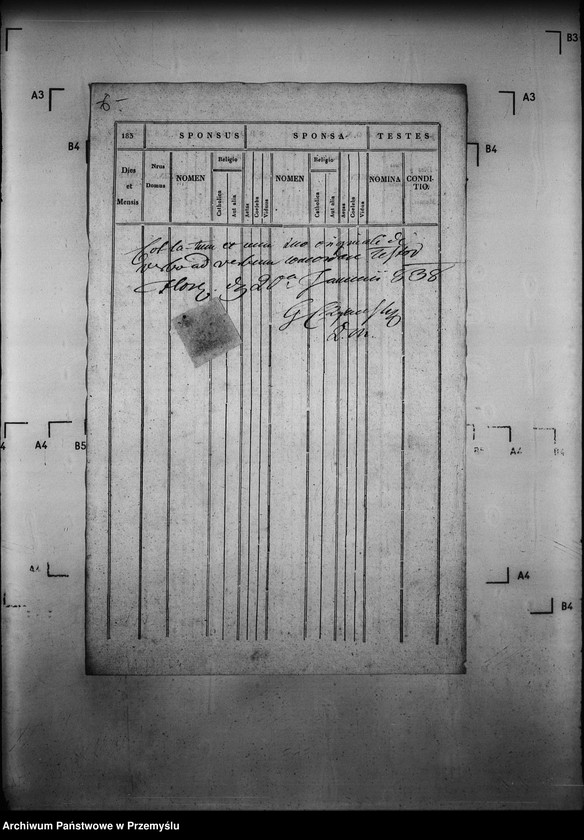 B3
A3
A3
B4
B4
183
SPONSUS
SPONSA
TESTES
Dies et Mensis
Nrus Domus
NOMEN
Religio
Catholica
Aut alia
Aetas
Coelebs
Viduus
NOMEN
Religio
Catholica
Aut alia
Aetas
Coelebs
Vidua
NOMINA
CONDI-
TIO.
cum suo originali de
verbo ad verbum concordare Testor
Januarii 838
A4
B5
A4
B4
A4
A4
B4
Archiwum Państwowe w Przemyślu